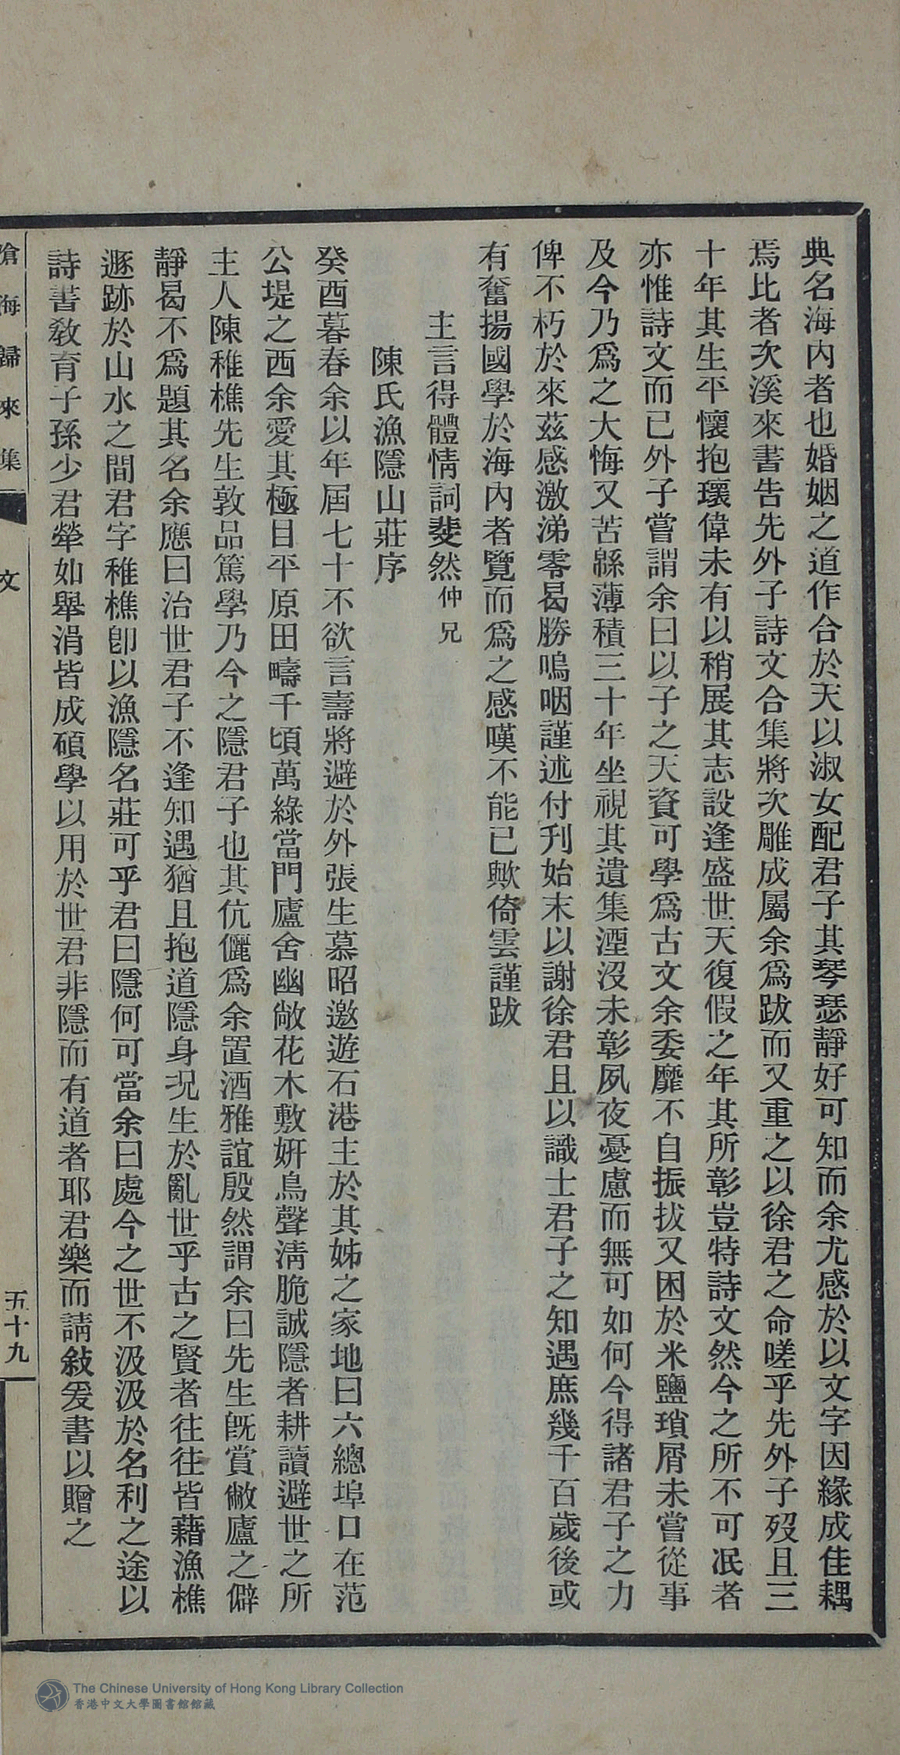 典名海內者也婚姻之道作合於天以淑女配君子其琴瑟靜好可知而余尤感於以文字因緣成佳耦
焉比者次溪來書告先外子詩文合集將次雕成屬余爲跋而又重之以徐君之命嗟乎先外子歿且三
十年其生平懷抱瓌偉未有以稍展其志設逢盛世天復假之年其所彰豈特詩文然今之所不可泯者
亦惟詩文而已外子嘗謂余曰以子之天資可學爲古文余委靡不自振拔又困於米鹽瑣屑未嘗從事
及今乃爲之大悔又苦緜薄積三十年坐視其遺集湮沒未彰夙夜憂慮而無可如何今得諸君子之力
俾不朽於來茲感激涕零曷勝嗚咽謹述付刋始末以謝徐君且以識士君子之知遇庶幾千百歲後或
有奮揚國學於海內者覽而爲之感嘆不能已歟倚雲謹跋
主言得體情詞斐然仲兄
陳氏漁隱山莊序
癸酉暮春余以年屆七十不欲言壽將避於外張生慕昭邀遊石港主於其姊之家地曰六總埠口在范
公堤之西余愛其極目平原田疇千頃萬綠當門廬舍幽敞花木敷姸鳥聲淸脆誠隱者耕讀避世之所
主人陳稚樵先生敦品篤學乃今之隱君子也其伉儷爲余置酒雅誼殷然謂余曰先生旣賞敝廬之僻
靜曷不爲題其名余應曰治世君子不逢知遇猶且抱道隱身況生於亂世乎古之賢者往往皆藉漁樵
遯跡於山水之間君字稚樵卽以漁隱名莊可乎君曰隱何可當余曰處今之世不汲汲於名利之途以
詩書敎育子孫少君犖如舉涓皆成碩學以用於世君非隱而有道者耶君樂而請敍爰書以贈之
滄海歸來集
文
五十九
The Chinese University of Hong Kong Library Collection
香港中文大學圖書館館藏